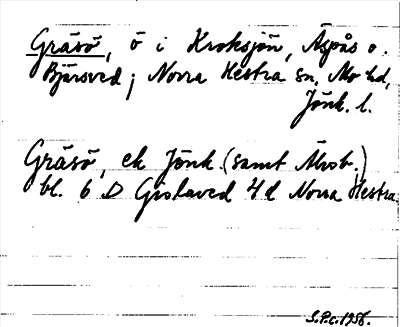 Gräsö, ö i Kroksjön, Äspås o.
Bjärsved; Norra Hestra sn, Mo hd,
Jönk. l.
Gräsö, ek Jönk. (samt Älvsb.)
bl. 6 D Gislaved 4d Norra Hestra
S.P.c. 1956.